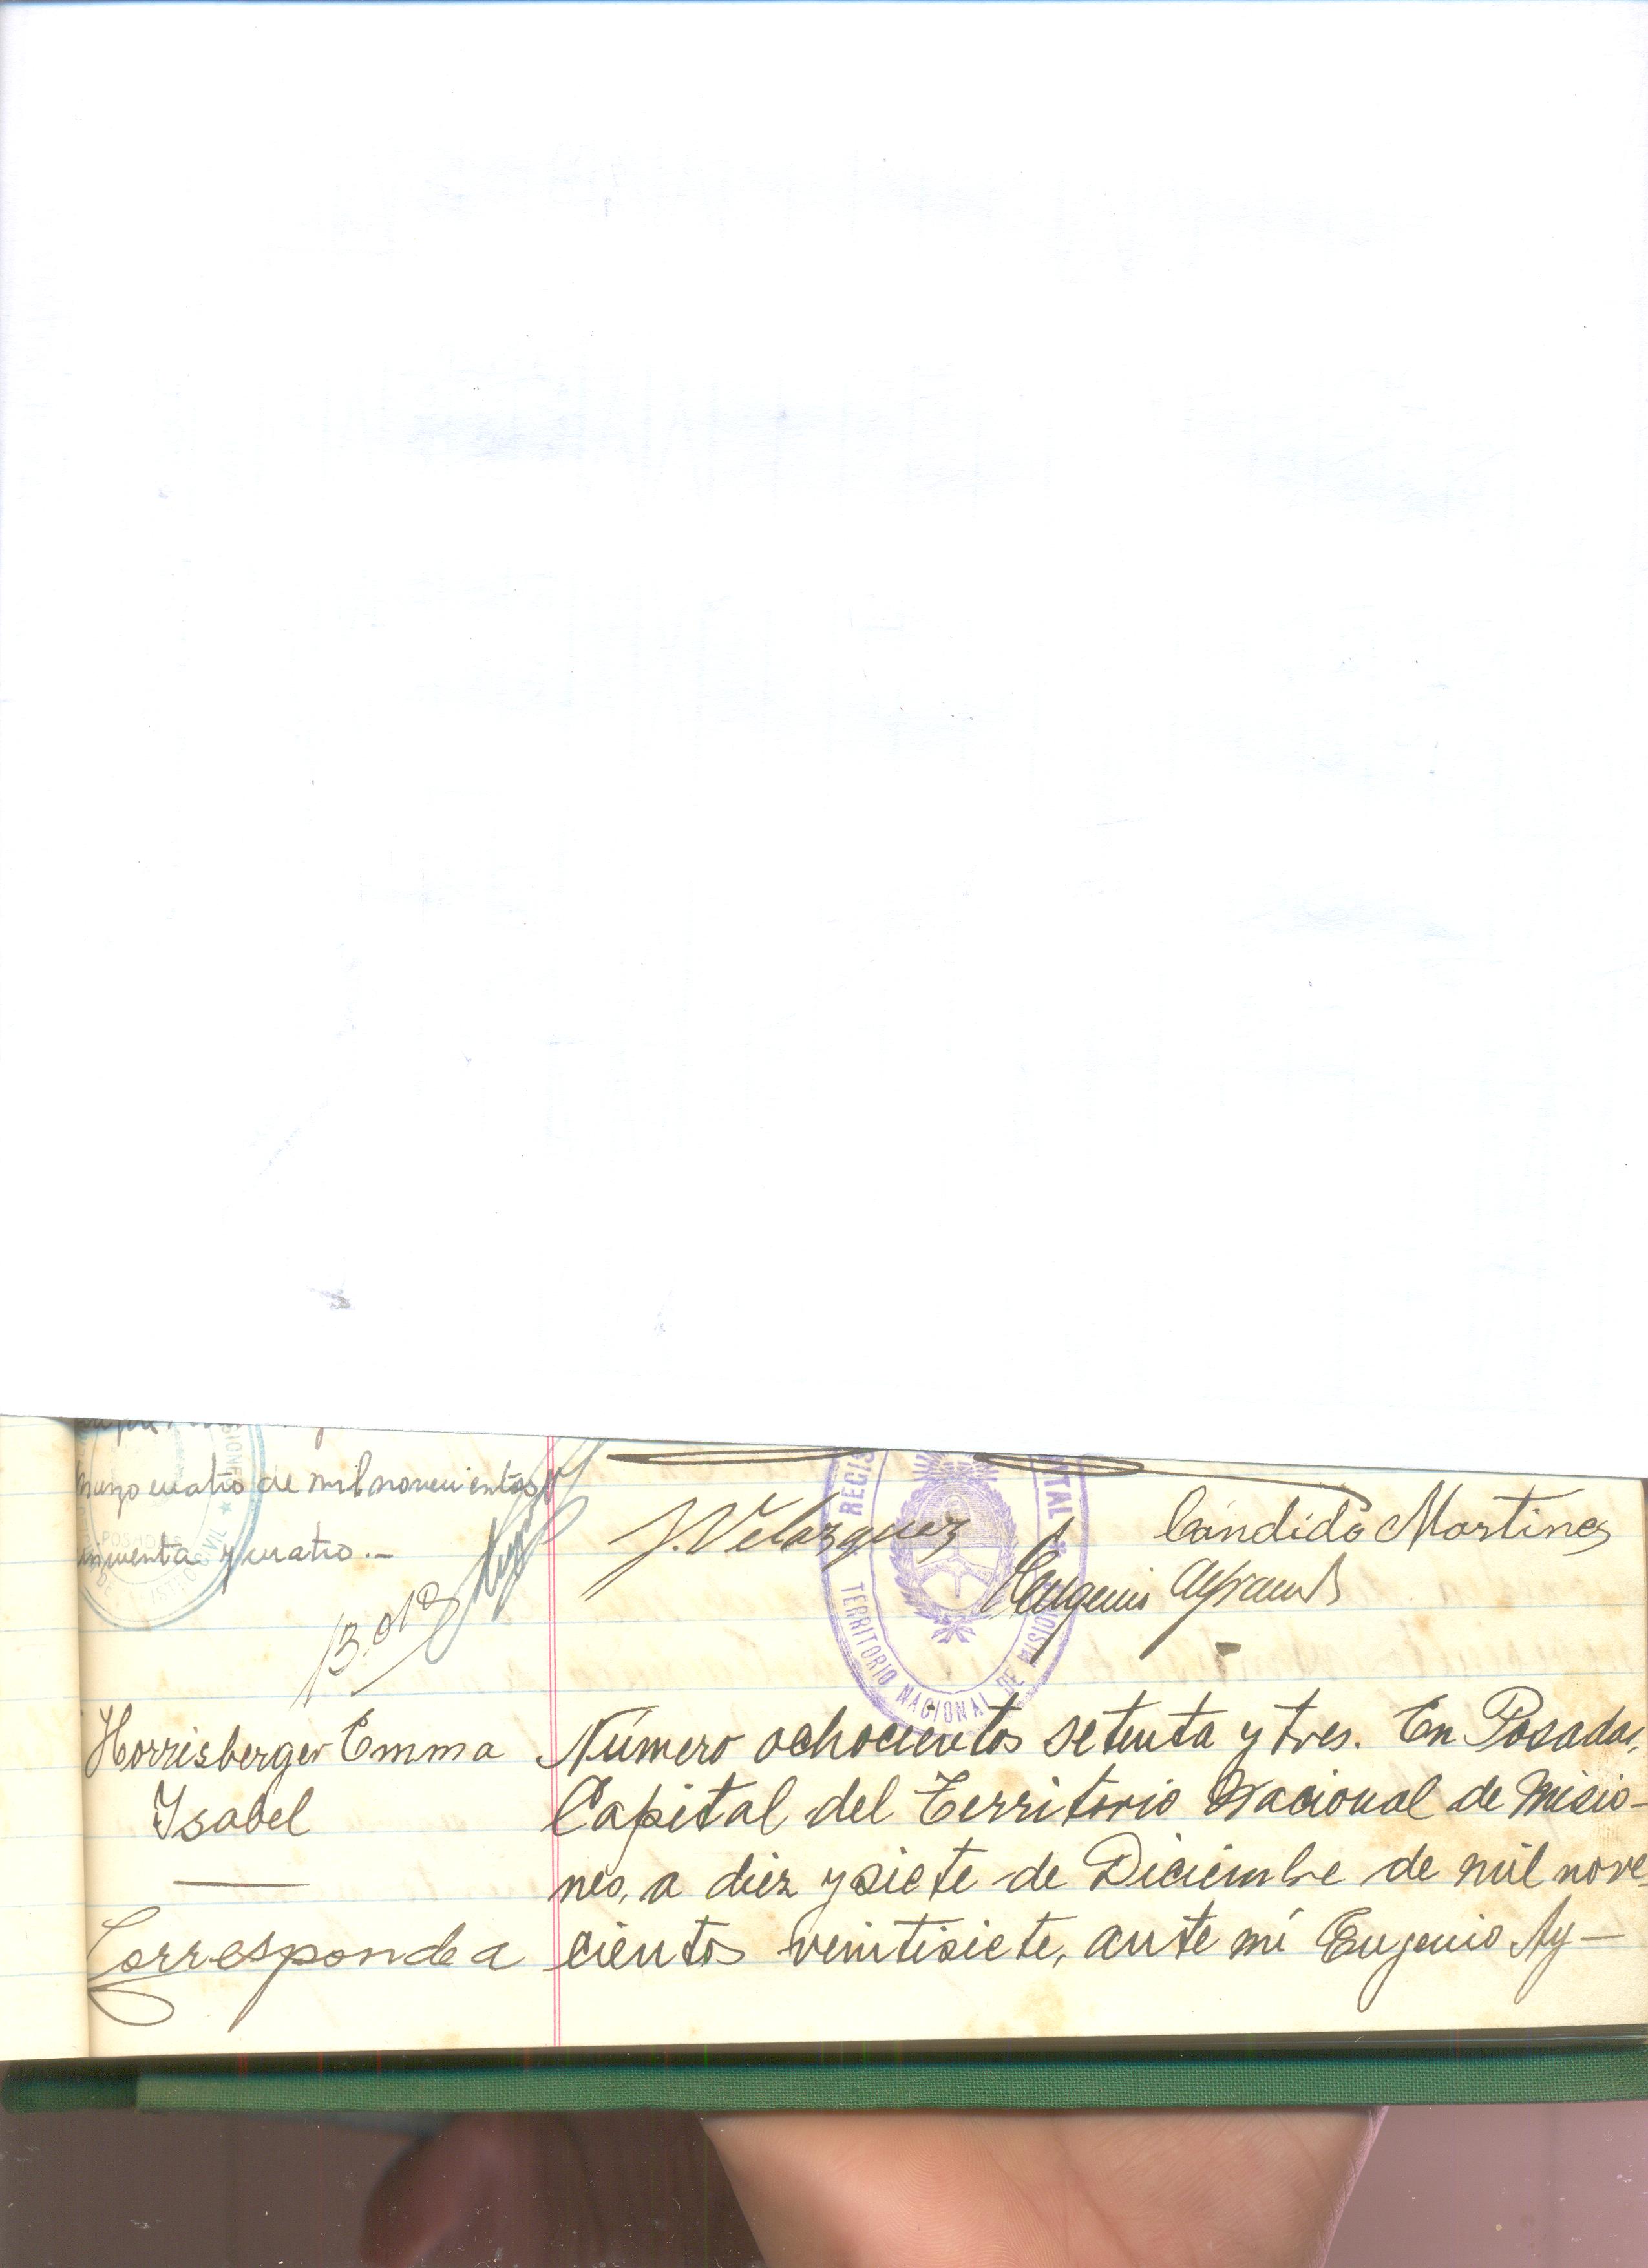 de mil novecientos
y cuatro.-
J. Velazquez
Cándido Martines
Eugenio
REGIS
TAL
TERRITORIO NACIONAL DE MISION
13.019
Horrisberger Emma
Isabel
Corresponde a
Número ochocientos setenta y tres. En Posadas,
Capital del Territorio Nacional de Misio-
nes, a diez y siete de Diciembre de mil nove-
cientos veintisiete, ante mí Eugenio Ay-